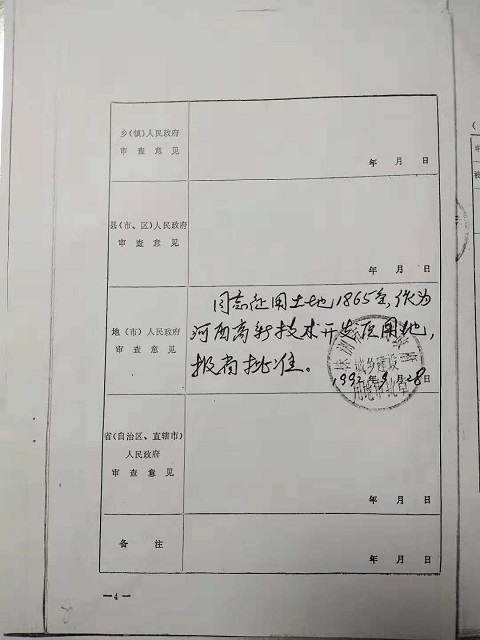 乡(镇)人民政府
审查意见
年 月 日
县(市、区)人民政府
审查意见
年 月 日
地(市)人民政府
审查意见
同意征用土地1865亩,作为
河西高新技术开发区用地,
报省批准。
1992年9月28日
城乡建设
用地审批章
省(自治区、直辖市)
人民政府
审查意见
年 月 日
备注
年 月 日
—4—